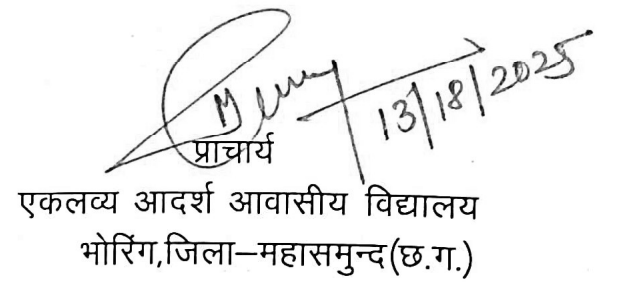 13/18/2025
प्राचार्य
एकलव्य आदर्श आवासीय विद्यालय
भोरिंग,जिला–महासमुन्द(छ.ग.)